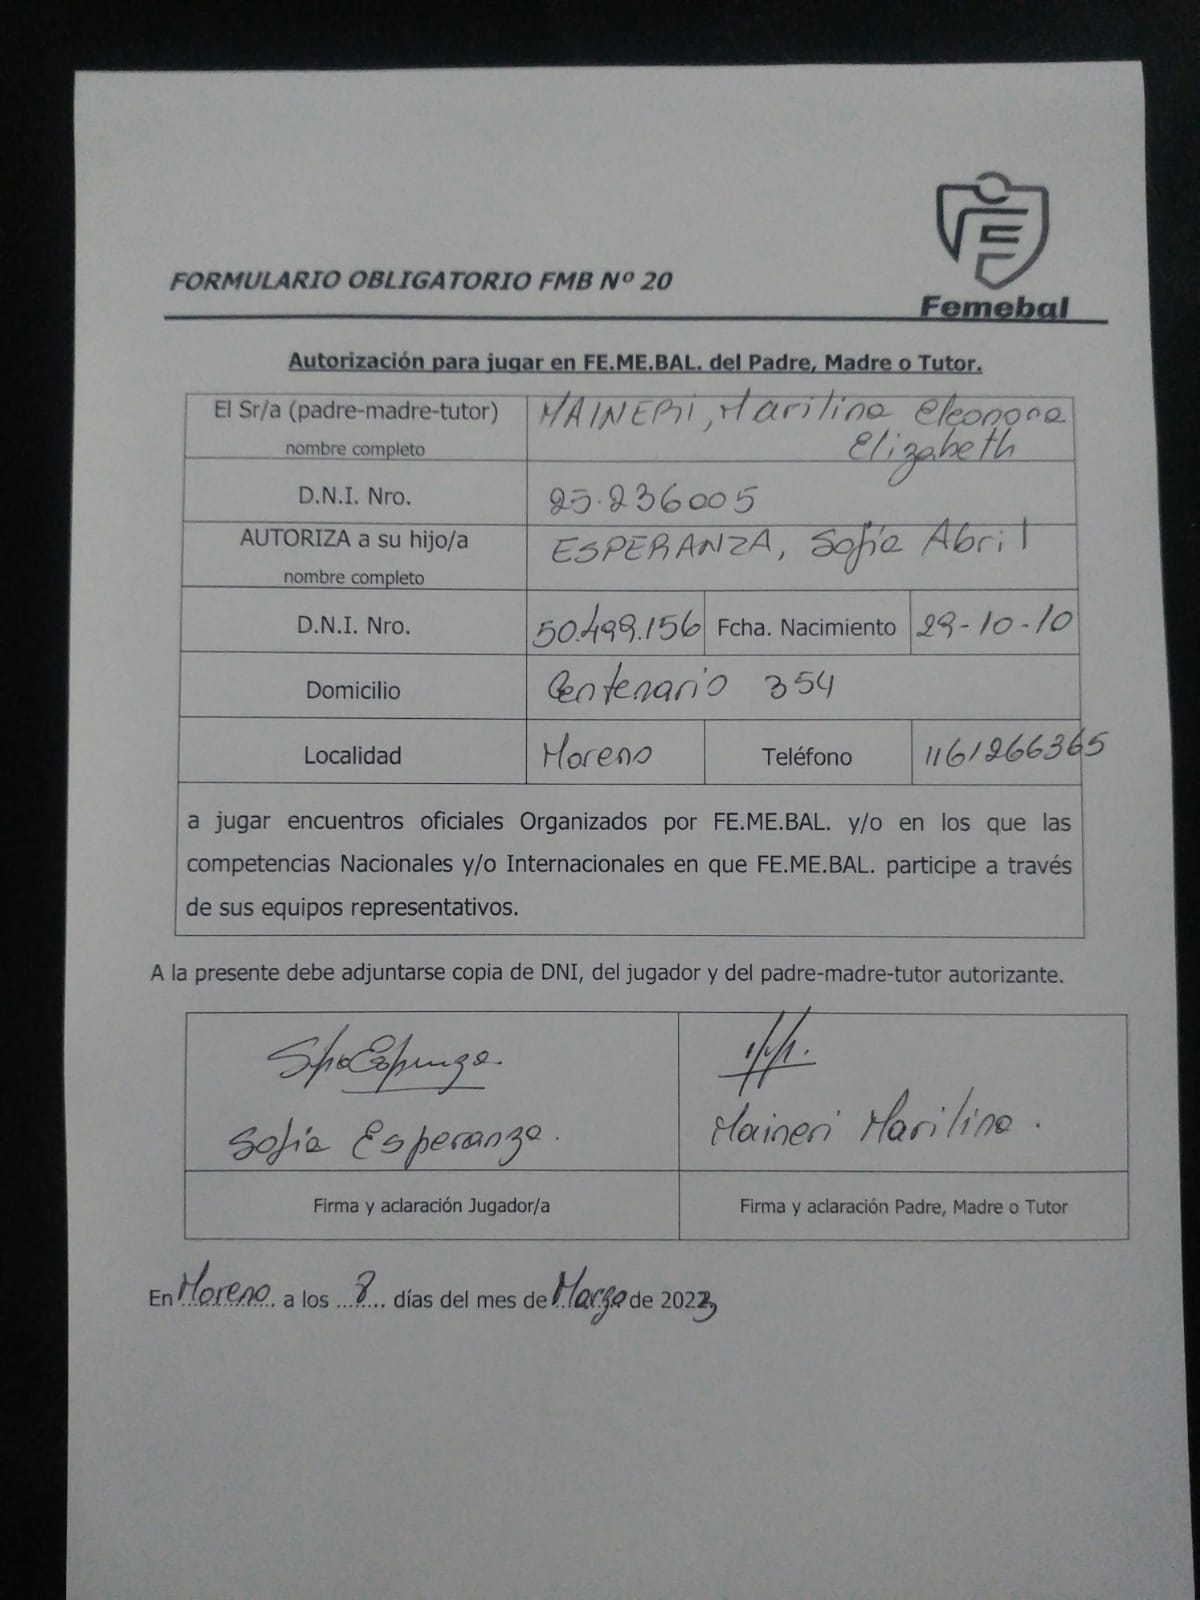 Femebal
FORMULARIO OBLIGATORIO FMB Nº 20
Autorización para jugar en FE.ME.BAL. del Padre, Madre o Tutor.
El Sr/a (padre-madre-tutor) MAINERI, Marilina Eleonora
nombre completo Elizabeth
D.N.I. Nro. 25.236005
AUTORIZA a su hijo/a ESPERANZA, Sofía Abril
nombre completo
D.N.I. Nro. 50.499.156 Fcha. Nacimiento 29-10-10
Domicilio Centenario 354
Localidad Moreno Teléfono 1161266365
a jugar encuentros oficiales Organizados por FE.ME.BAL. y/o en los que las
competencias Nacionales y/o Internacionales en que FE.ME.BAL. participe a través
de sus equipos representativos.
A la presente debe adjuntarse copia de DNI, del jugador y del padre-madre-tutor autorizante.
Sofía Esperanza. Maineri Marilina.
Firma y aclaración Jugador/a Firma y aclaración Padre, Madre o Tutor
En Moreno a los ...8... días del mes de Marzo de 2023